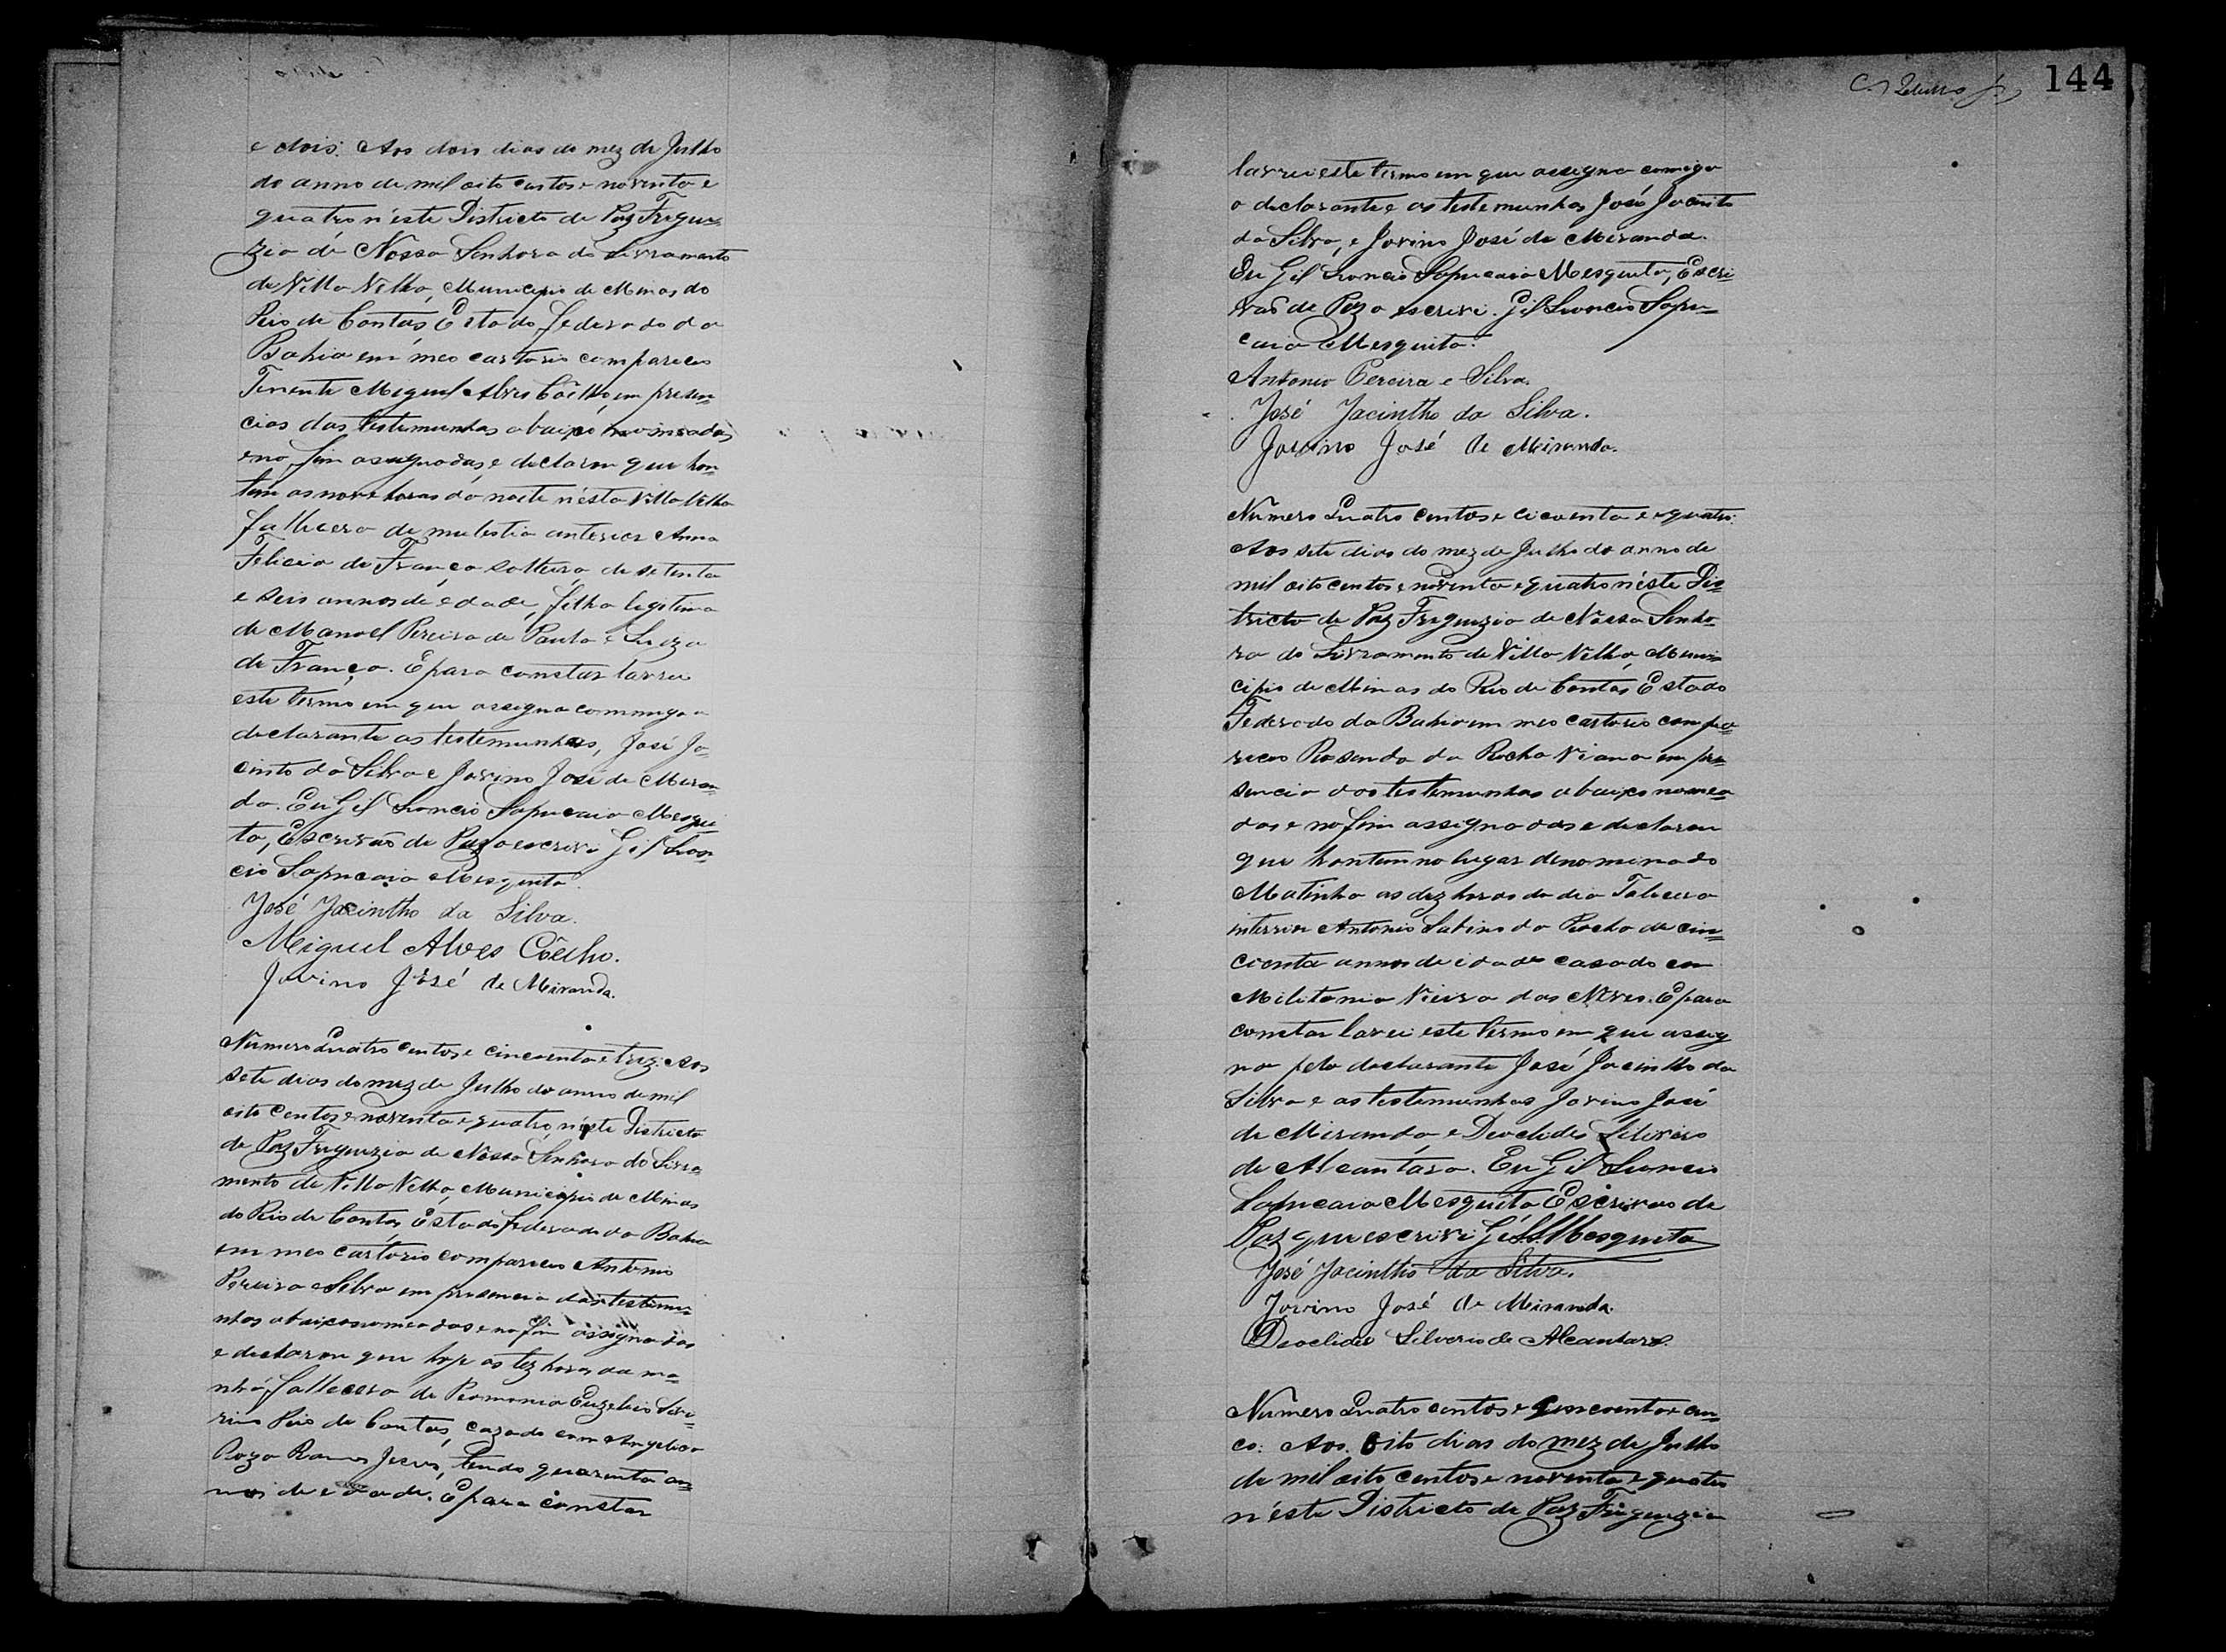 e dois. Aos dois dias do mez de Julho
do anno de mil oito centos e noventa e
quatro n'este Districto de Paz Fregue-
zia de Nossa Senhora do Livramento
de Villa Velha, Municipio de Minas do
Rio de Contas Estado federado da
Bahia em meo cartorio compareceo
Tenente Miguel Alves Coêlho, em presen-
cias das testemunhas abaixo nomeadas
e no fim assignadas, e declarou que hon-
tem as nove horas da noite n'esta Villa Velha
fallecera de molestia anterior Anna
Felicia de França solteira de setenta
e seis annos de edade, filha legitima
de Manoel Pereira de Paula e Luiza
de França. E para constar lavrei
este termo em que assigna commigo o
declarante as testemunhas, José Ja-
cinto da Silva e Jovino José de Miran-
da. Eu Gil Leoncio Sapucaia Mesqui-
ta, Escrivão de Paz o escrevi Gil Leon-
cio Sapucaia Mesquita.
José Jacintho da Silva.
Miguel Alves Coêlho.
Jovino José de Miranda.
Numero Quatro centos e cincoenta e trez: Aos
sete dias do mez de Julho do anno de mil
oito centos e noventa e quatro, n'este Districto
de Paz Freguezia de Nossa Senhora do Livra-
mento de Villa Velha, Municipio de Minas
do Rio de Contas, Estado federado da Bahia
em meo cartorio compareceo Antonio
Pereira e Silva em presencia das testemu-
nhas abaixo nomeadas e no fim assignadas
e declarou que hoje as tez horas da ma-
nhã, fallecera de Pneumonia Euzebio
Rio de Contas, cazado com Angelica
Roza Jesus, tendo quarenta an-
nos de edade. E para constar
144
lavrei este termo em que assigna comigo
o declarante e as testemunhas José Jacinto
da Silva, e Jovino José de Miranda.
Eu Gil Leoncio Sapucaia Mesquita, Escri-
vaõ de Paz o escrevi. Gil Leoncio Sapu-
caia Mesquita.
Antonio Pereira e Silva.
José Jacintho da Silva.
Jovino José de Miranda.
Numero Quatro centos e cicoenta e quatro:
Aos sete dias do mez de Julho do anno de
mil oito centos e noventa e quatro n'este Dis-
tricto de Paz Freguezia de Nossa Senho-
ra do Livramento de Villa Velha, Muni-
cipio de Minas do Rio de Contas, Estado
Federado da Bahia em meo cartorio compa-
receo Rosendo da Rocha Viana em pre-
sencia das testemunhas abaixo nomea-
das e no fim assignadas e declarou
que hontem no lugar denominado
Matinha as dez horas do dia Falicera
Antonio Sabino da Rocha de cin-
coenta annos de idade casado com
Militania Vieira das Neves. E para
constar lavrei este termo em que assig
na pelo declarante José Jacintho da
Silva e as testemunhas Jovino José
de Miranda, e Deoclides Silverio
de Alcantara. Eu Gil Leoncio
Sapucaia Mesquita Escrivaõ de
Paz que escrevi Gil L. S. Mesquita
José Jacintho da Silva.
Jovino José de Miranda.
Deoclides Silverio de Alcantara.
Numero Quatro centos e cincoenta e cin-
co: Aos oito dias do mez de Julho
de mil oito centos e noventa e quatro
n'este Districto de Paz Freguezia